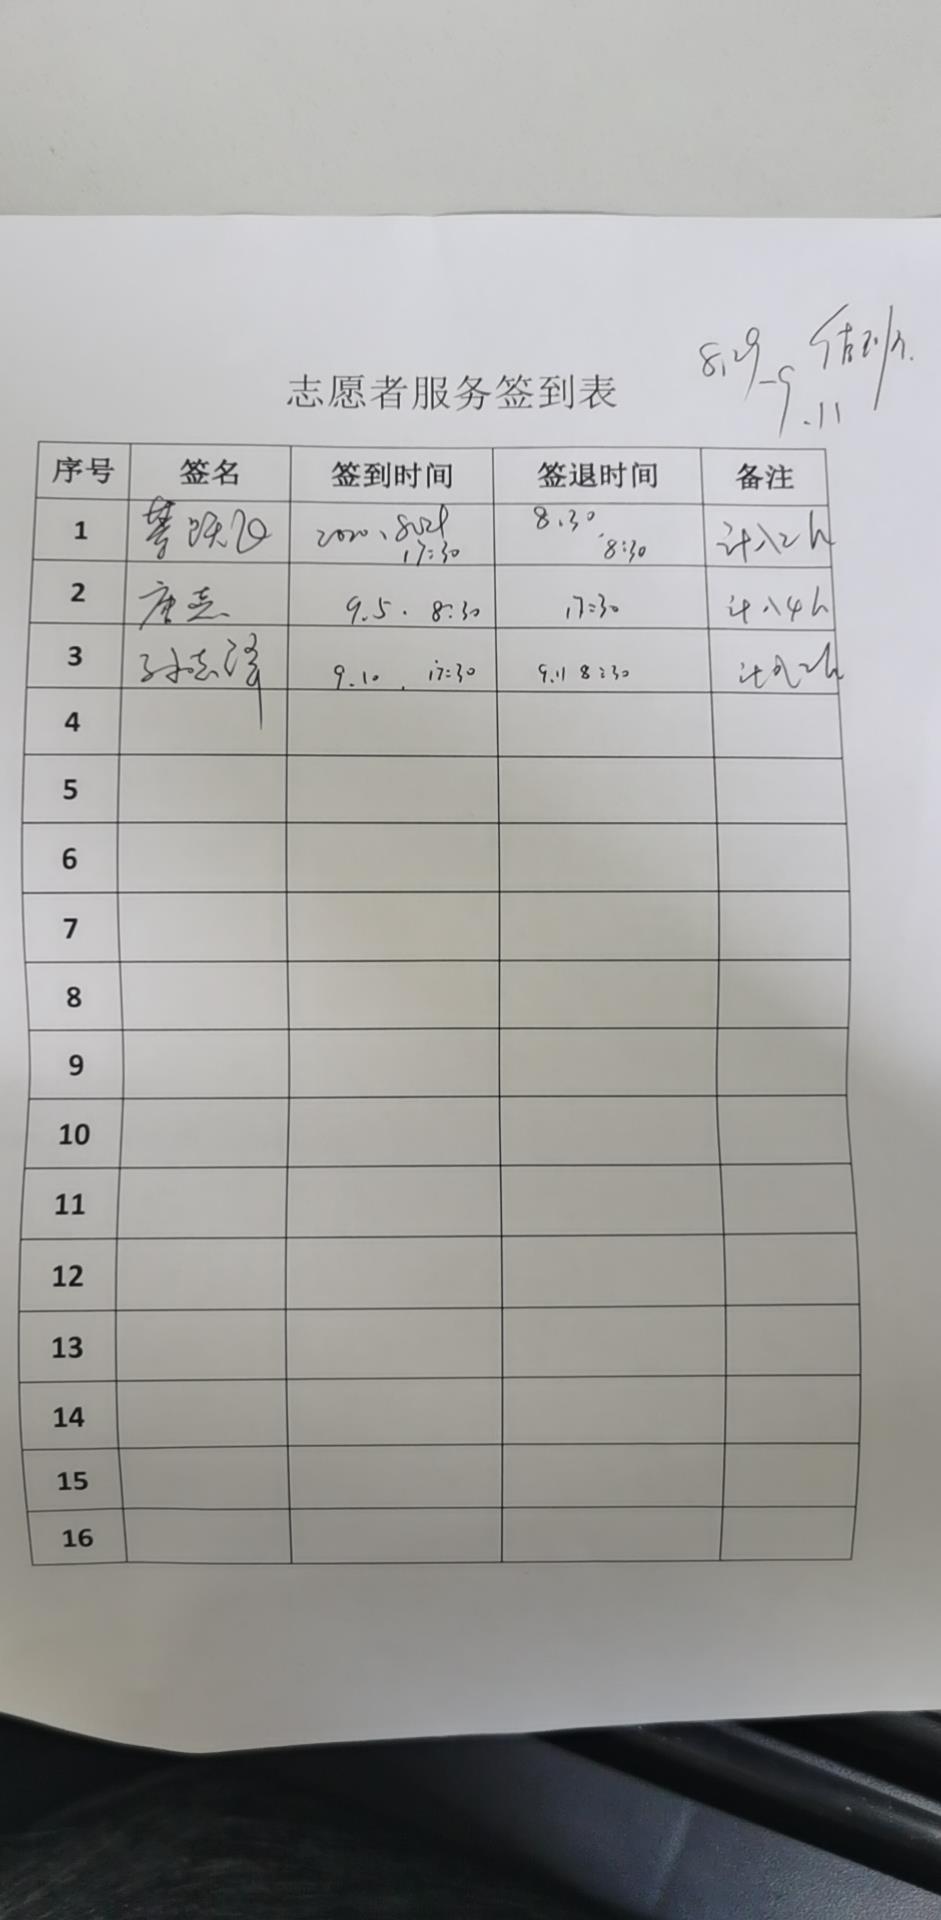 8.29-9.11
志愿者服务签到表
序号 签名 签到时间 签退时间 备注
1 跃飞 2020.8.29 17:30 8.30 8:30 计入2h
2 唐志 9.5. 8:30 17:30 计入4h
3 孙志泽 9.10. 17:30 9.11 8:30 计入2h
4
5
6
7
8
9
10
11
12
13
14
15
16